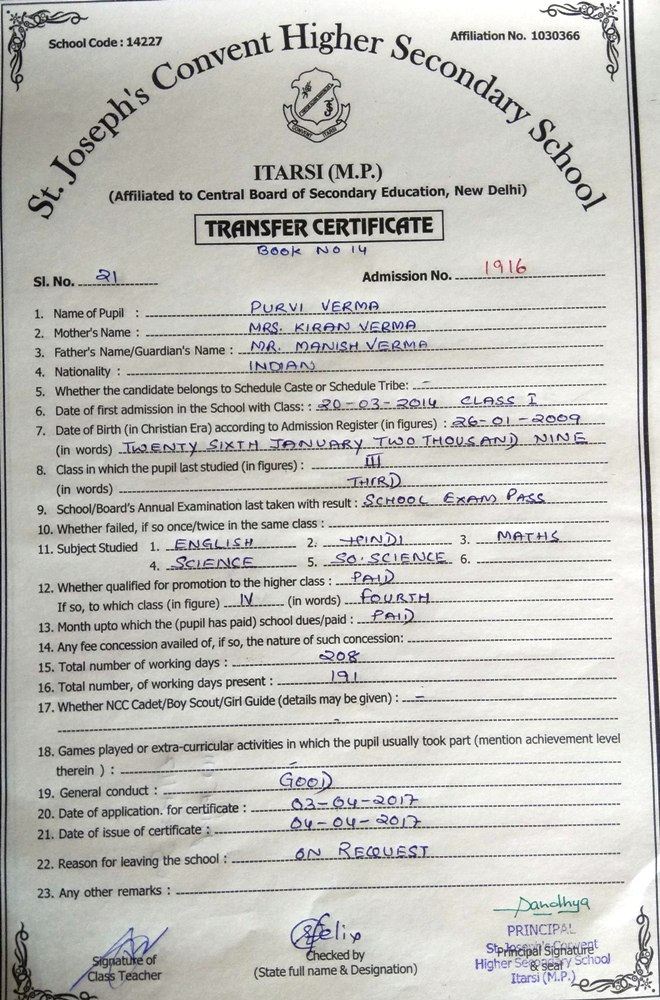 School Code : 14227
Affiliation No. 1030366
St. Joseph's Convent Higher Secondary School
CONVENT ITARSI
ITARSI (M.P.)
(Affiliated to Central Board of Secondary Education, New Delhi)
TRANSFER CERTIFICATE
BOOK NO 14
Sl. No. 21 Admission No. 1916
1. Name of Pupil : PURVI VERMA
2. Mother's Name : MRS. KIRAN VERMA
3. Father's Name/Guardian's Name : MR. MANISH VERMA
4. Nationality : INDIAN
5. Whether the candidate belongs to Schedule Caste or Schedule Tribe: -
6. Date of first admission in the School with Class: : 20-03-2014 CLASS I
7. Date of Birth (in Christian Era) according to Admission Register (in figures) : 26-01-2009
(in words) TWENTY SIXTH JANUARY TWO THOUSAND NINE
8. Class in which the pupil last studied (in figures) : III
(in words) THIRD
9. School/Board's Annual Examination last taken with result : SCHOOL EXAM PASS
10. Whether failed, if so once/twice in the same class :
11. Subject Studied 1. ENGLISH 2. HINDI 3. MATHS
4. SCIENCE 5. SO.SCIENCE 6.
12. Whether qualified for promotion to the higher class : PAID
If so, to which class (in figure) IV (in words) FOURTH
13. Month upto which the (pupil has paid) school dues/paid : PAID
14. Any fee concession availed of, if so, the nature of such concession:
15. Total number of working days : 208
16. Total number, of working days present : 191
17. Whether NCC Cadet/Boy Scout/Girl Guide (details may be given) : -
-
18. Games played or extra-curricular activities in which the pupil usually took part (mention achievement level
therein ) : -
19. General conduct : GOOD
20. Date of application. for certificate : 03-04-2017
21. Date of issue of certificate : 04-04-2017
22. Reason for leaving the school : ON REQUEST
23. Any other remarks :
Signature of
Class Teacher
Felix
Checked by
(State full name & Designation)
Sandhya
PRINCIPAL
St. Joseph's Convent
Higher Secondary School
Itarsi (M.P.)
Principal Signature
& seal